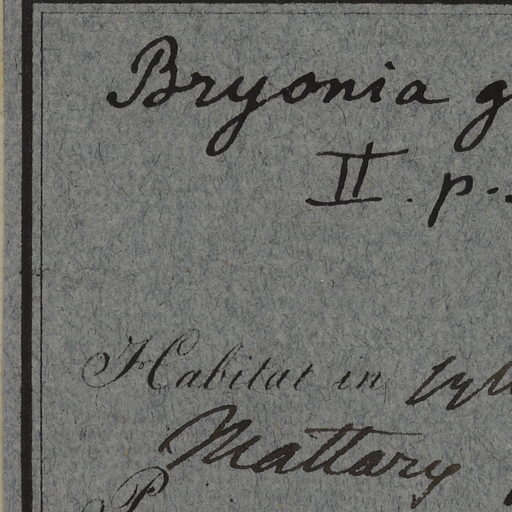 Bryonia g
II. p.
Habitat in syl
Mattary
P